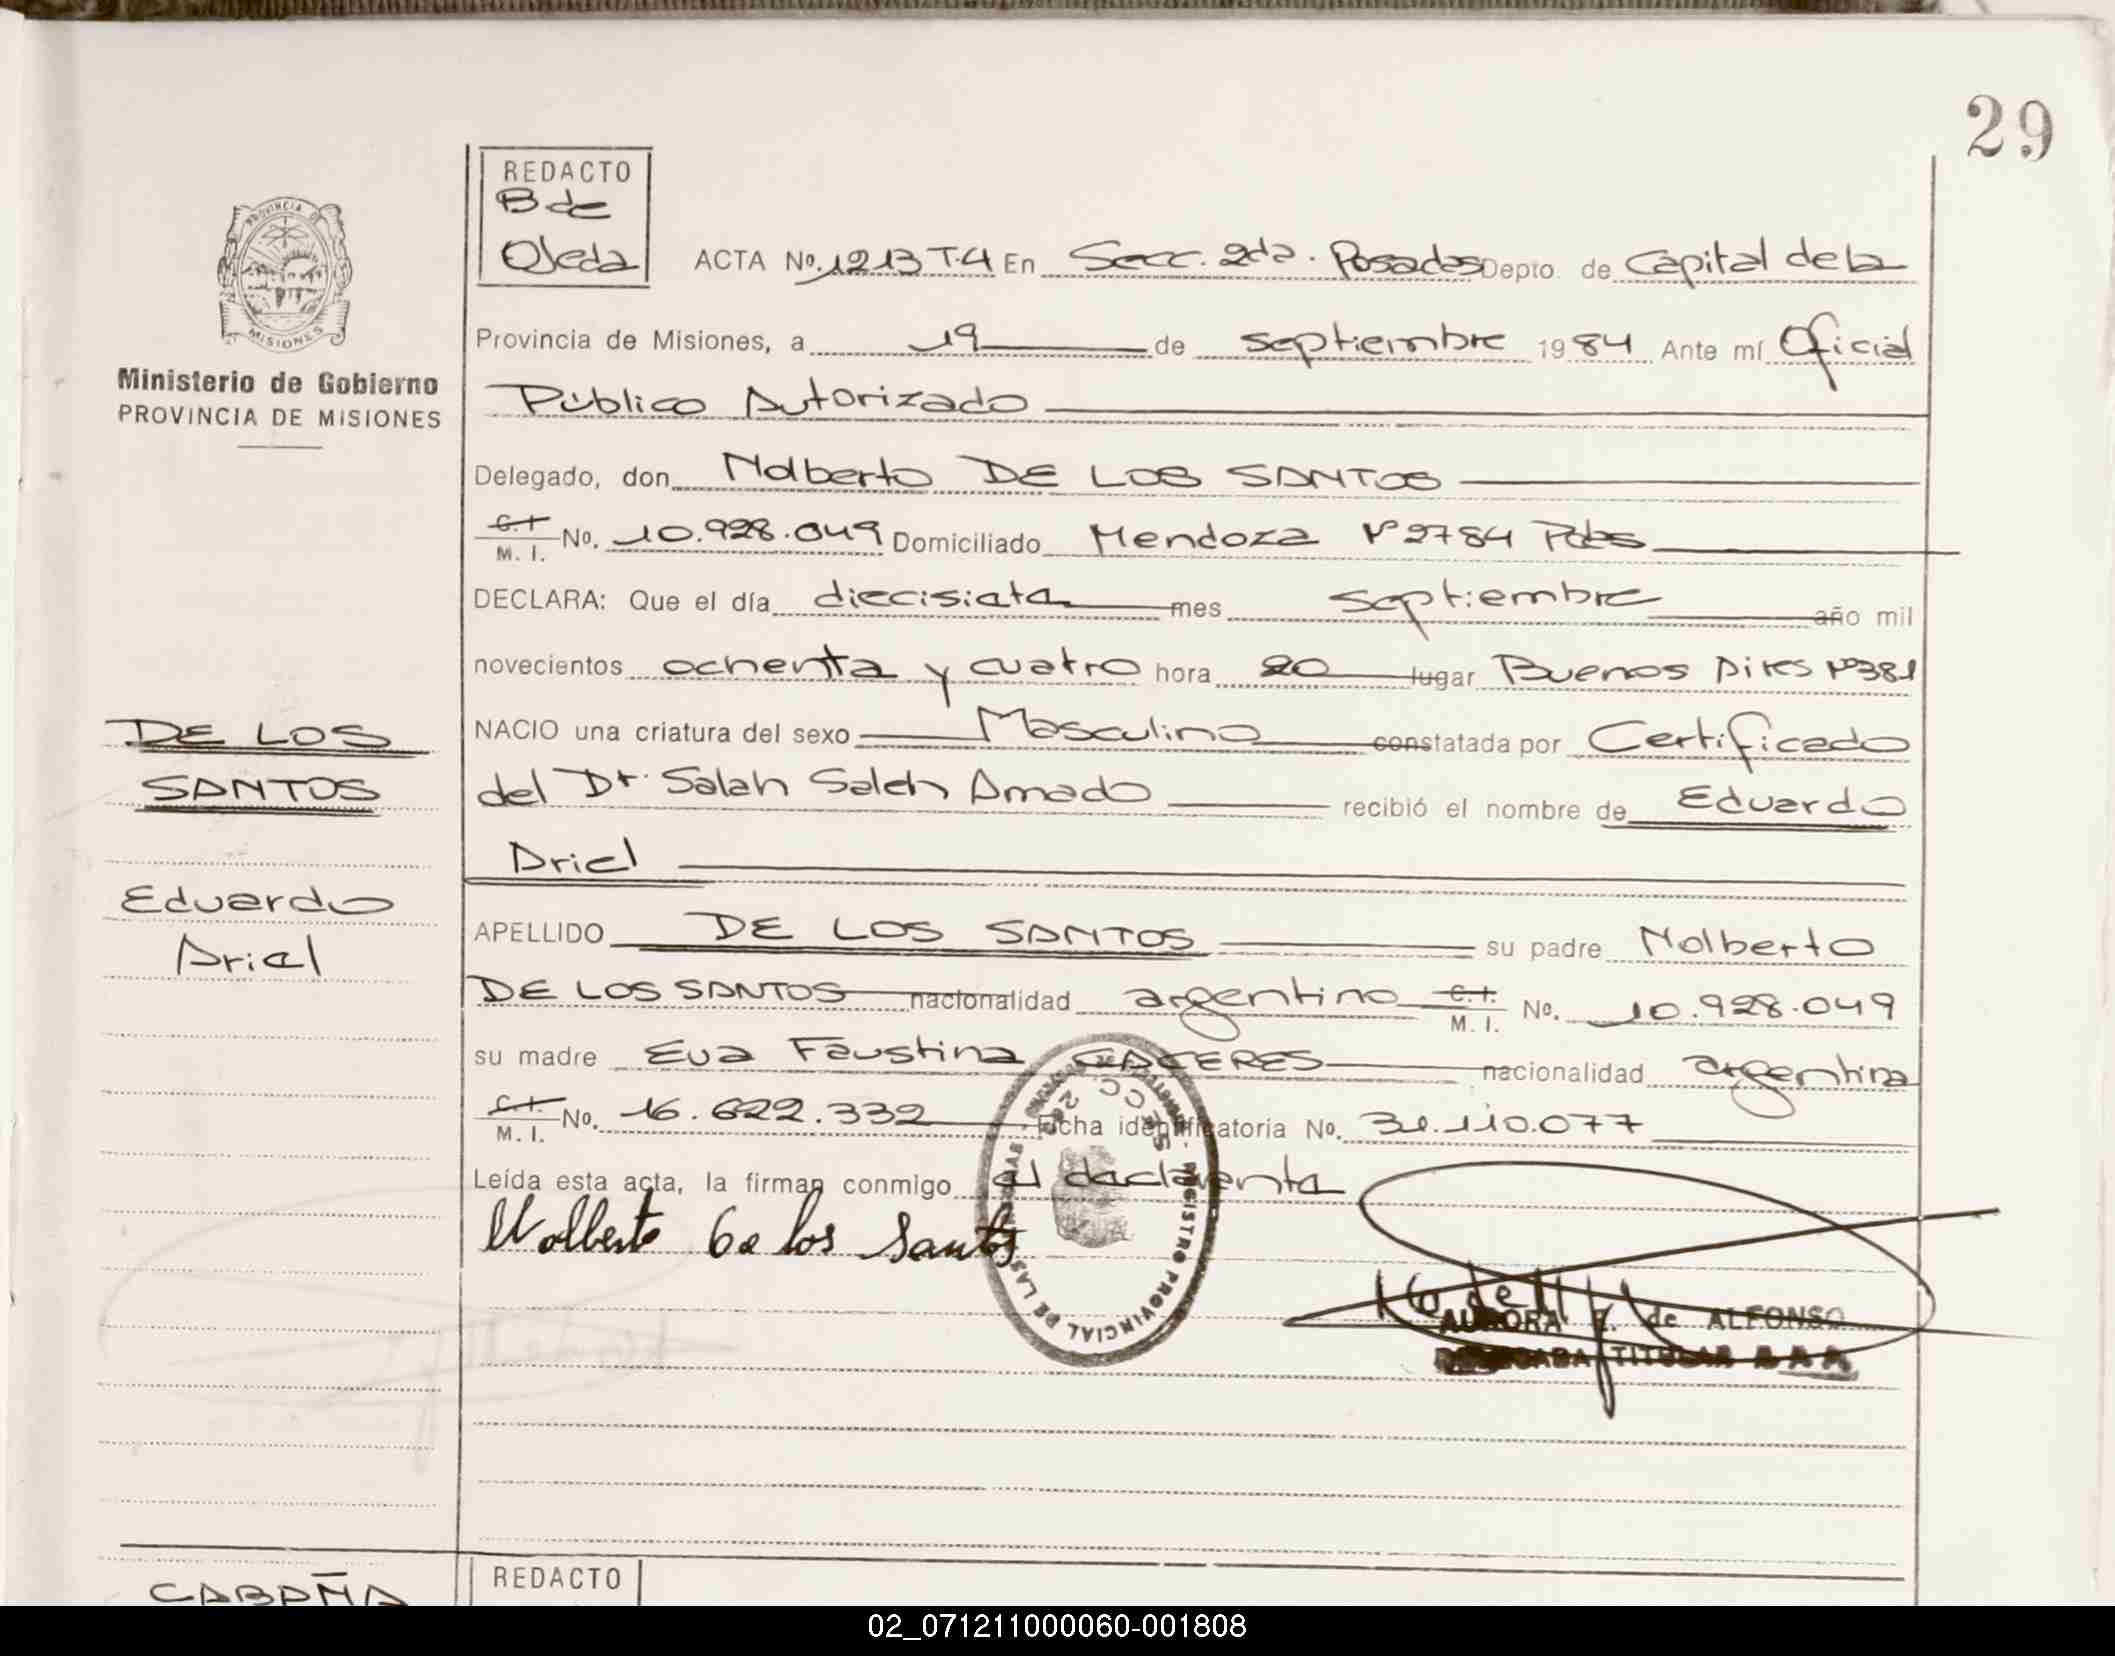 29
REDACTO
B de
Ojeda
ACTA No. 1213 T.4 En Secc. 2da. Posadas Depto. de Capital de la
PROVINCIA D
MISIONES
Ministerio de Gobierno
PROVINCIA DE MISIONES
Provincia de Misiones, a 19 de septiembre 1984 Ante mí Oficial
Público Autorizado
Delegado, don Nolberto DE LOS SANTOS
C.I. M. I. No. 10.928.049 Domiciliado Mendoza Nº 2784 Pdas
DECLARA: Que el día diecisiete mes septiembre año mil
novecientos ochenta y cuatro hora 20 lugar Buenos Aires Nº381
NACIO una criatura del sexo Masculino constatada por Certificado
del Dr. Salah Saleh Amado recibió el nombre de Eduardo
Ariel
APELLIDO DE LOS SANTOS su padre Nolberto
DE LOS SANTOS nacionalidad argentino C.I. M. I. No. 10.928.049
su madre Eva Faustina CACERES nacionalidad argentina
C.I. M. I. No. 16.622.332 Ficha identificatoria No. 31.110.077
Leída esta acta, la firman conmigo el declarante
Nolberto de los Santos
DE LOS
SANTOS
Eduardo
Ariel
REGISTRO PROVINCIAL DE LAS PERSONAS
SECC. 2da
AURORA de ALFONSO
DELEGADA TITULAR
CABAÑA
REDACTO
02_071211000060-001808